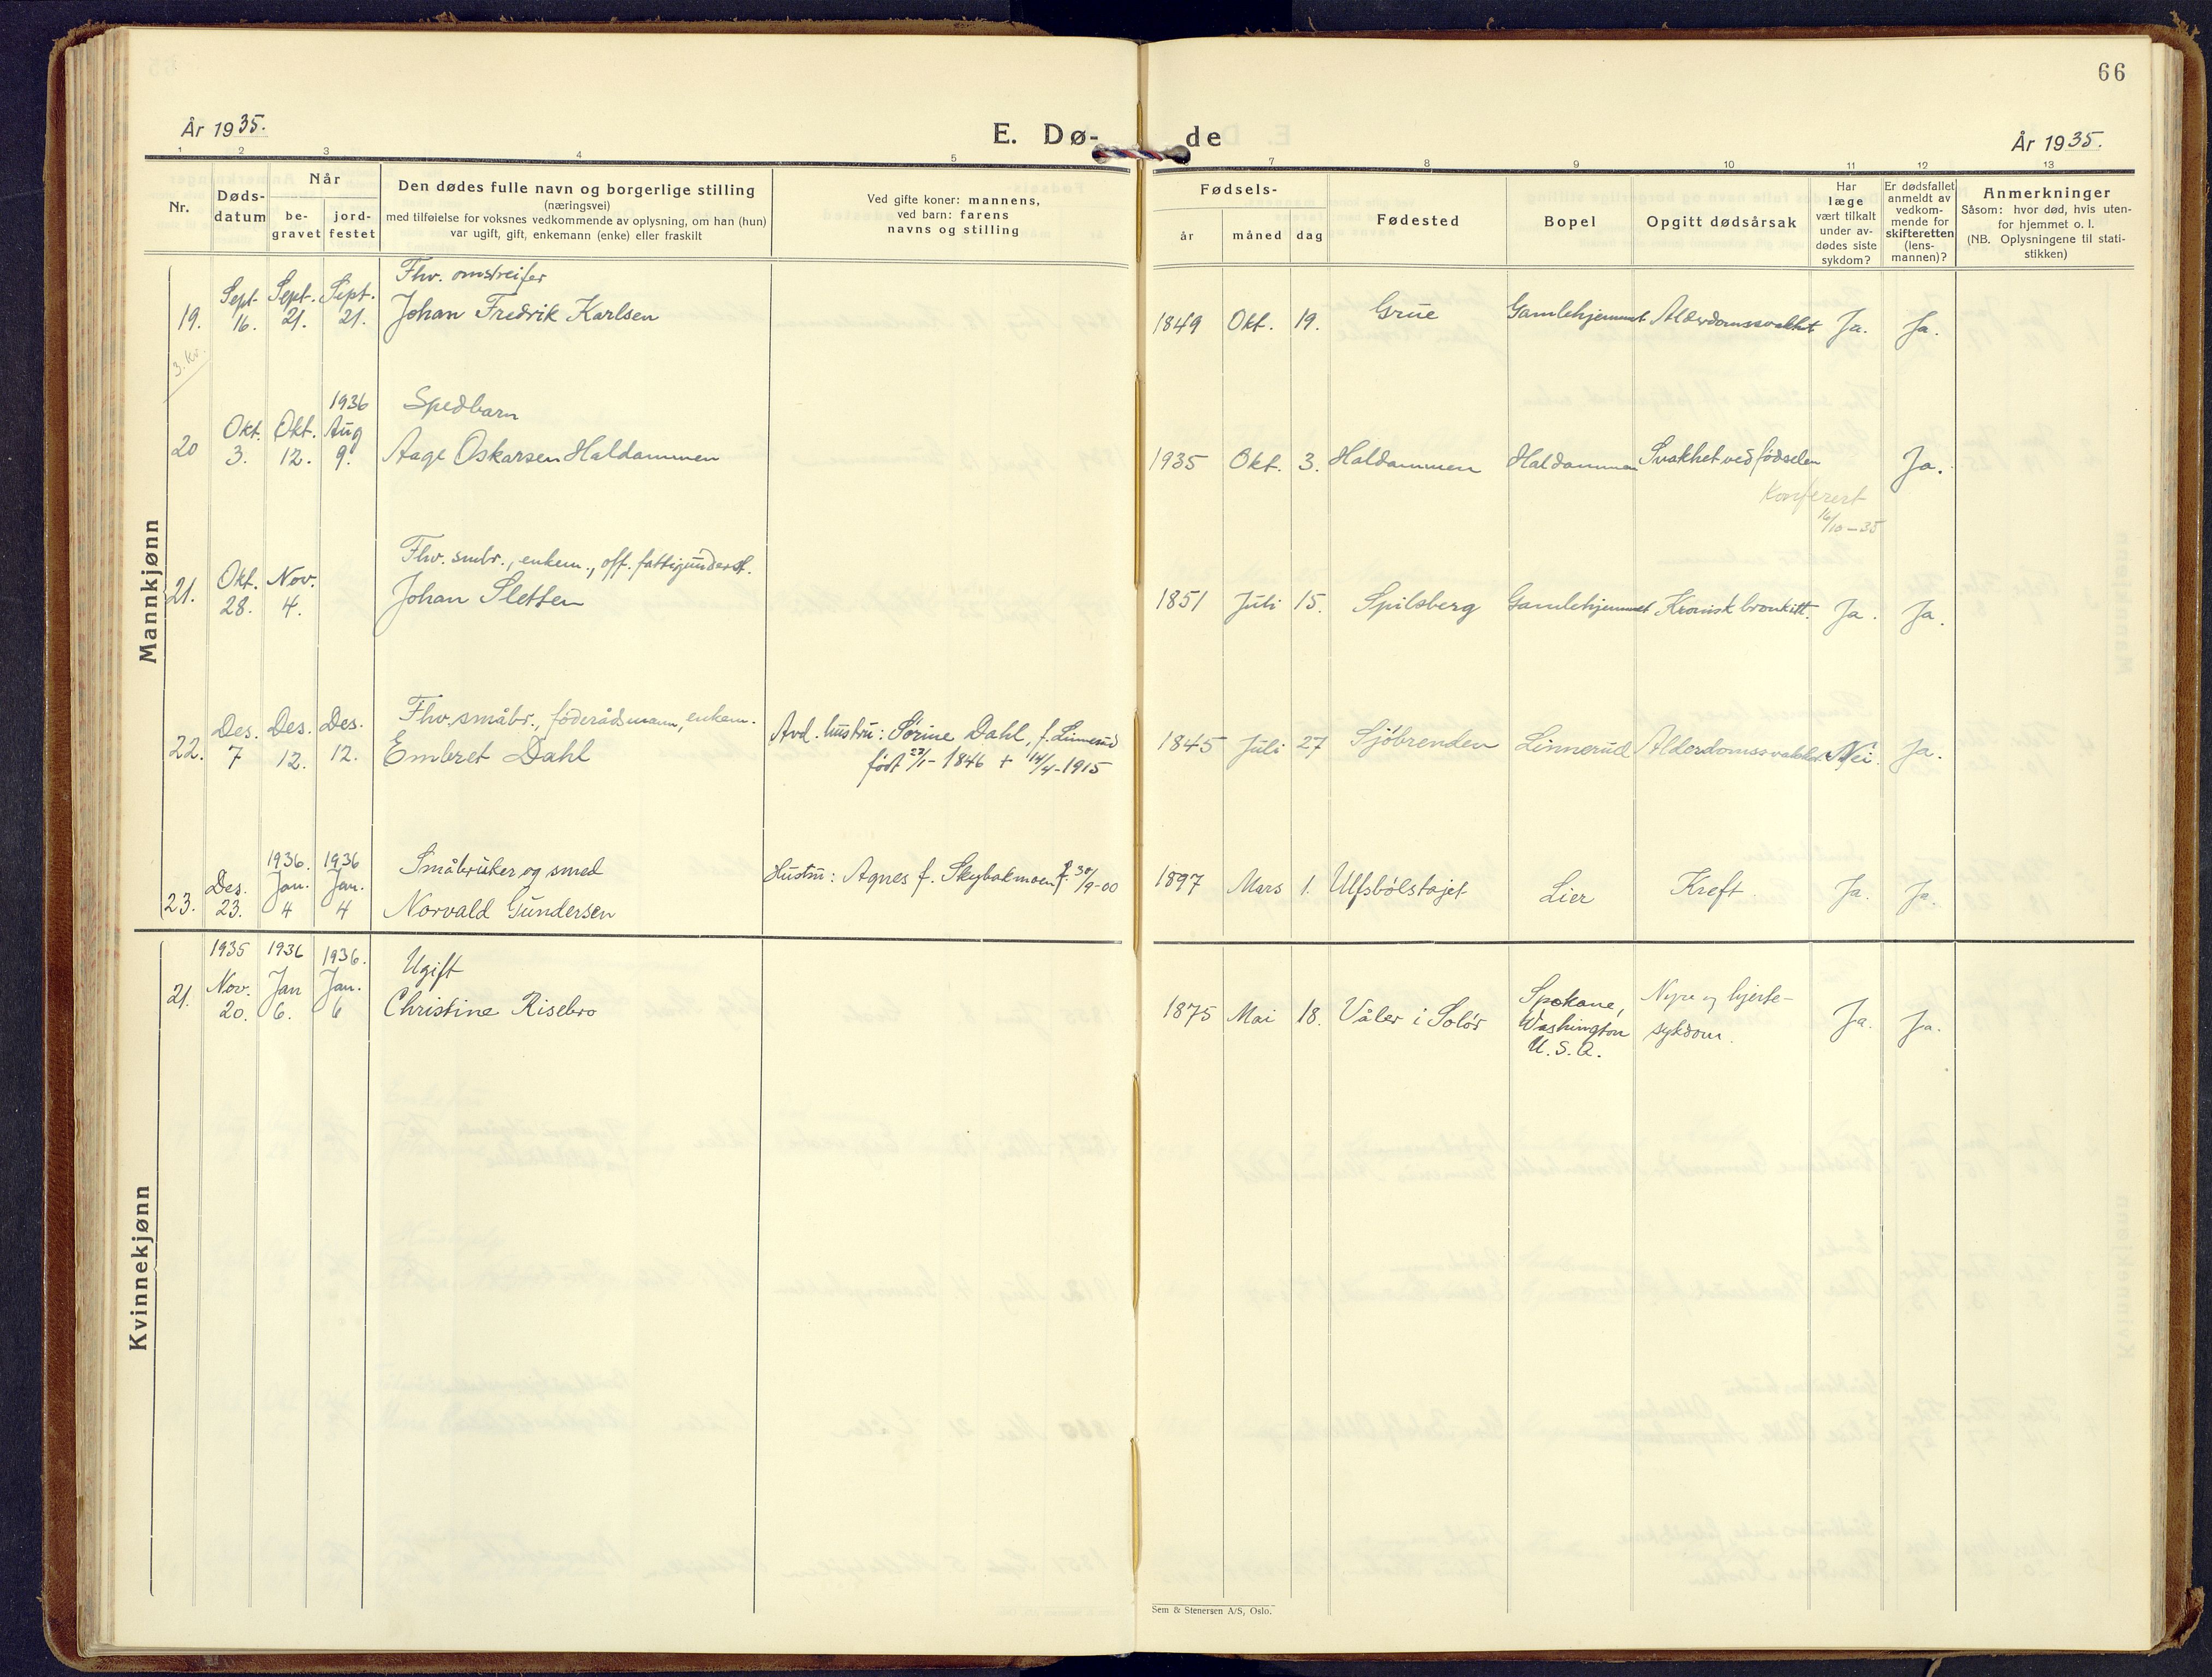 66
År 1935.
E. Dø- de
År 1935.
1 2 3 4 5 7 8 9 10 11 12 13
Nr.
Døds-
datum
Når
be-
gravet
jord-
festet
Den dødes fulle navn og borgerlige stilling
(næringsvei)
med tilføielse for voksnes vedkommende av oplysning, om han (hun)
var ugift, gift, enkemann (enke) eller fraskilt
Ved gifte koner: mannens,
ved barn: farens
navns og stilling
Fødsels-
år måned dag
Fødested
Bopel
Opgitt dødsårsak
Har
læge
vært tilkalt
under av-
dødes siste
sykdom?
Er dødsfallet
anmeldt av
vedkom-
mende for
skifteretten
(lens-
mannen)?
Anmerkninger
Såsom: hvor død, hvis uten-
for hjemmet o. l.
(NB. Oplysningene til stati-
stikken)
Mannkjønn
Fhv. omstreifer
19. Sept. 16. Sept. 21. Sept. 21. Johan Fredrik Karlsen 1849 Okt. 19. Grue Gamlehjemmet Alderdomssvakhet Ja. Ja.
3. kv.
1936 Spedbarn
20 Okt. 3. Okt. 12. Aug 9. Aage Oskarsen Haldammen 1935 Okt. 3. Haldammen Haldammen Svakhet ved fødselen Ja.
Konferert
16/10-35
Fhv. smbr., enkem., off. fattigunderst.
21. Okt. 28. Nov. 4. Johan Sletten 1851 Juli 15. Spilsberg Gamlehjemmet Kronisk bronkitt. Ja. Ja.
Fhv. småbr., føderådsmann, enkem.
22. Des. 7 Des. 12. Des. 12. Embret Dahl Avd. hustru: Sørine Dahl, f. Linnerud
født 27/1-1846 + 14/4-1915
1845 Juli 27 Sjøbrenden Linnerud Alderdomssvakhet. Nei. Ja.
1936. 1936 Småbruker og smed
23. Des. 23. Jan. 4 Jan. 4 Norvald Gundersen Hustru: Agnes f. Skybakmoen f. 30/9-00 1897 Mars 1. Ulfsbølstajet Lier Kreft. Ja. Ja.
Kvinnekjønn
1935 1936 1936. Ugift
21. Nov. 20. Jan 6. Jan. 6 Christine Risebro 1875 Mai 18. Våler i Solør Spokane,
Washington
U.S.A.
Nyre og hjerte-
sykdom.
Ja. Ja.
Sem & Stenersen A/S, Oslo.